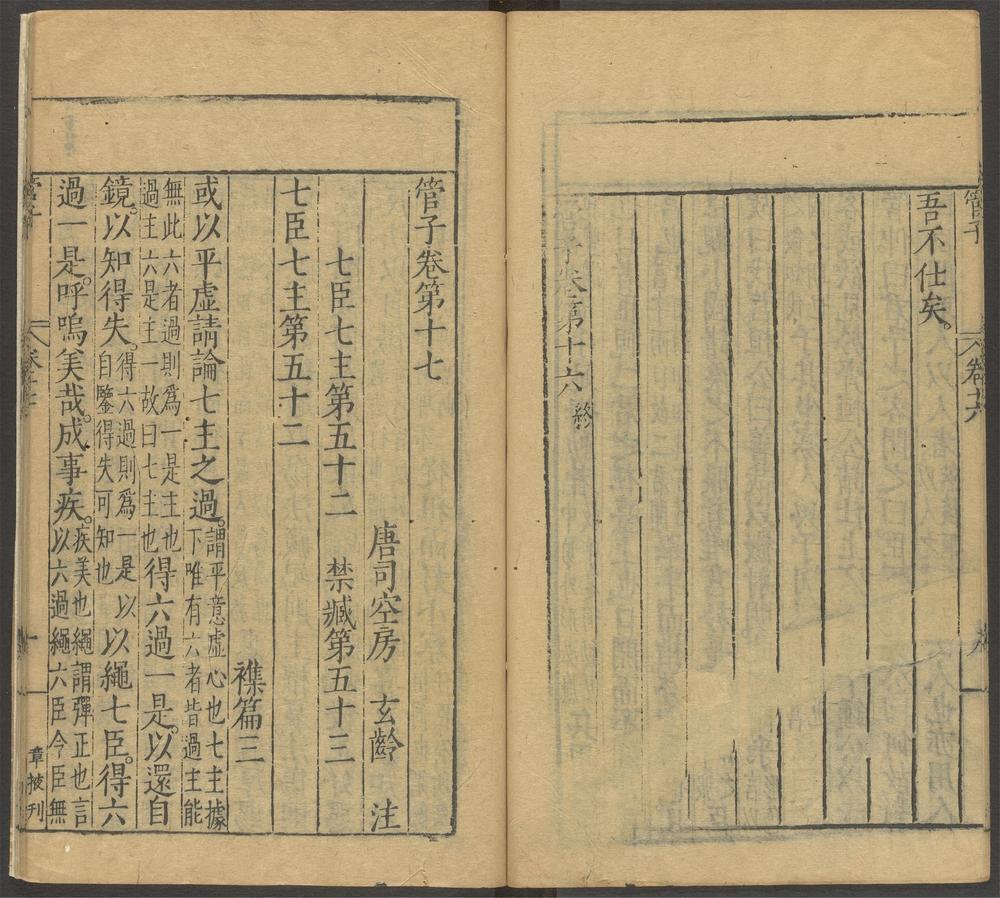 管子 卷十六
吾不仕矣。
管子卷第十六 終
管子卷第十七
唐司空房 玄齡 注
七臣七主第五十二 禁臧第五十三
襍篇三
七臣七主第五十二
或以平虛請論七主之過。謂平意虛心也七主據下唯有六者皆過主能
無此六者過則爲一是主也過主六是主一故曰七主也得六過一是。以還自
鏡。以知得失。得六過則爲一是以自鑒得失可知也以繩七臣。得六
過一是。呼嗚美哉。成事疾。疾美也繩謂彈正也言以六過繩六臣今臣無
卷十七